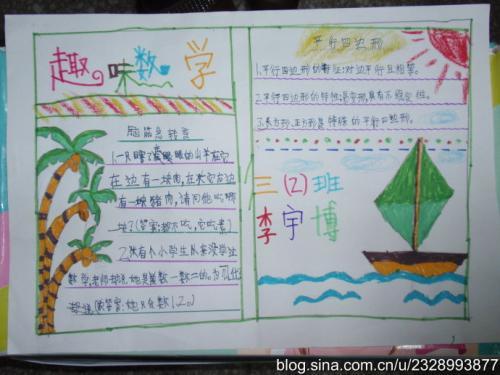 趣味数学
脑筋急转弯
1.一只瞎了 眼的山羊在它
在 边有一块肉,在 它右边
有一块猪肉,请问他吃哪
块?(答案:都不吃,它吃素)
2.张有个小学生从来没学过
数学,老师却说她是数一数二的。为
答案:她只会数1.2。)
平行四边形
1.平行四边形的特征:对边平行且相等。
2.平行四边形的特性:易变形,具有不稳定性。
3.长方形、正方形是特殊的平行四边形。
三(2)班
李宇博
blog.sina.com.cn/u/2328993877